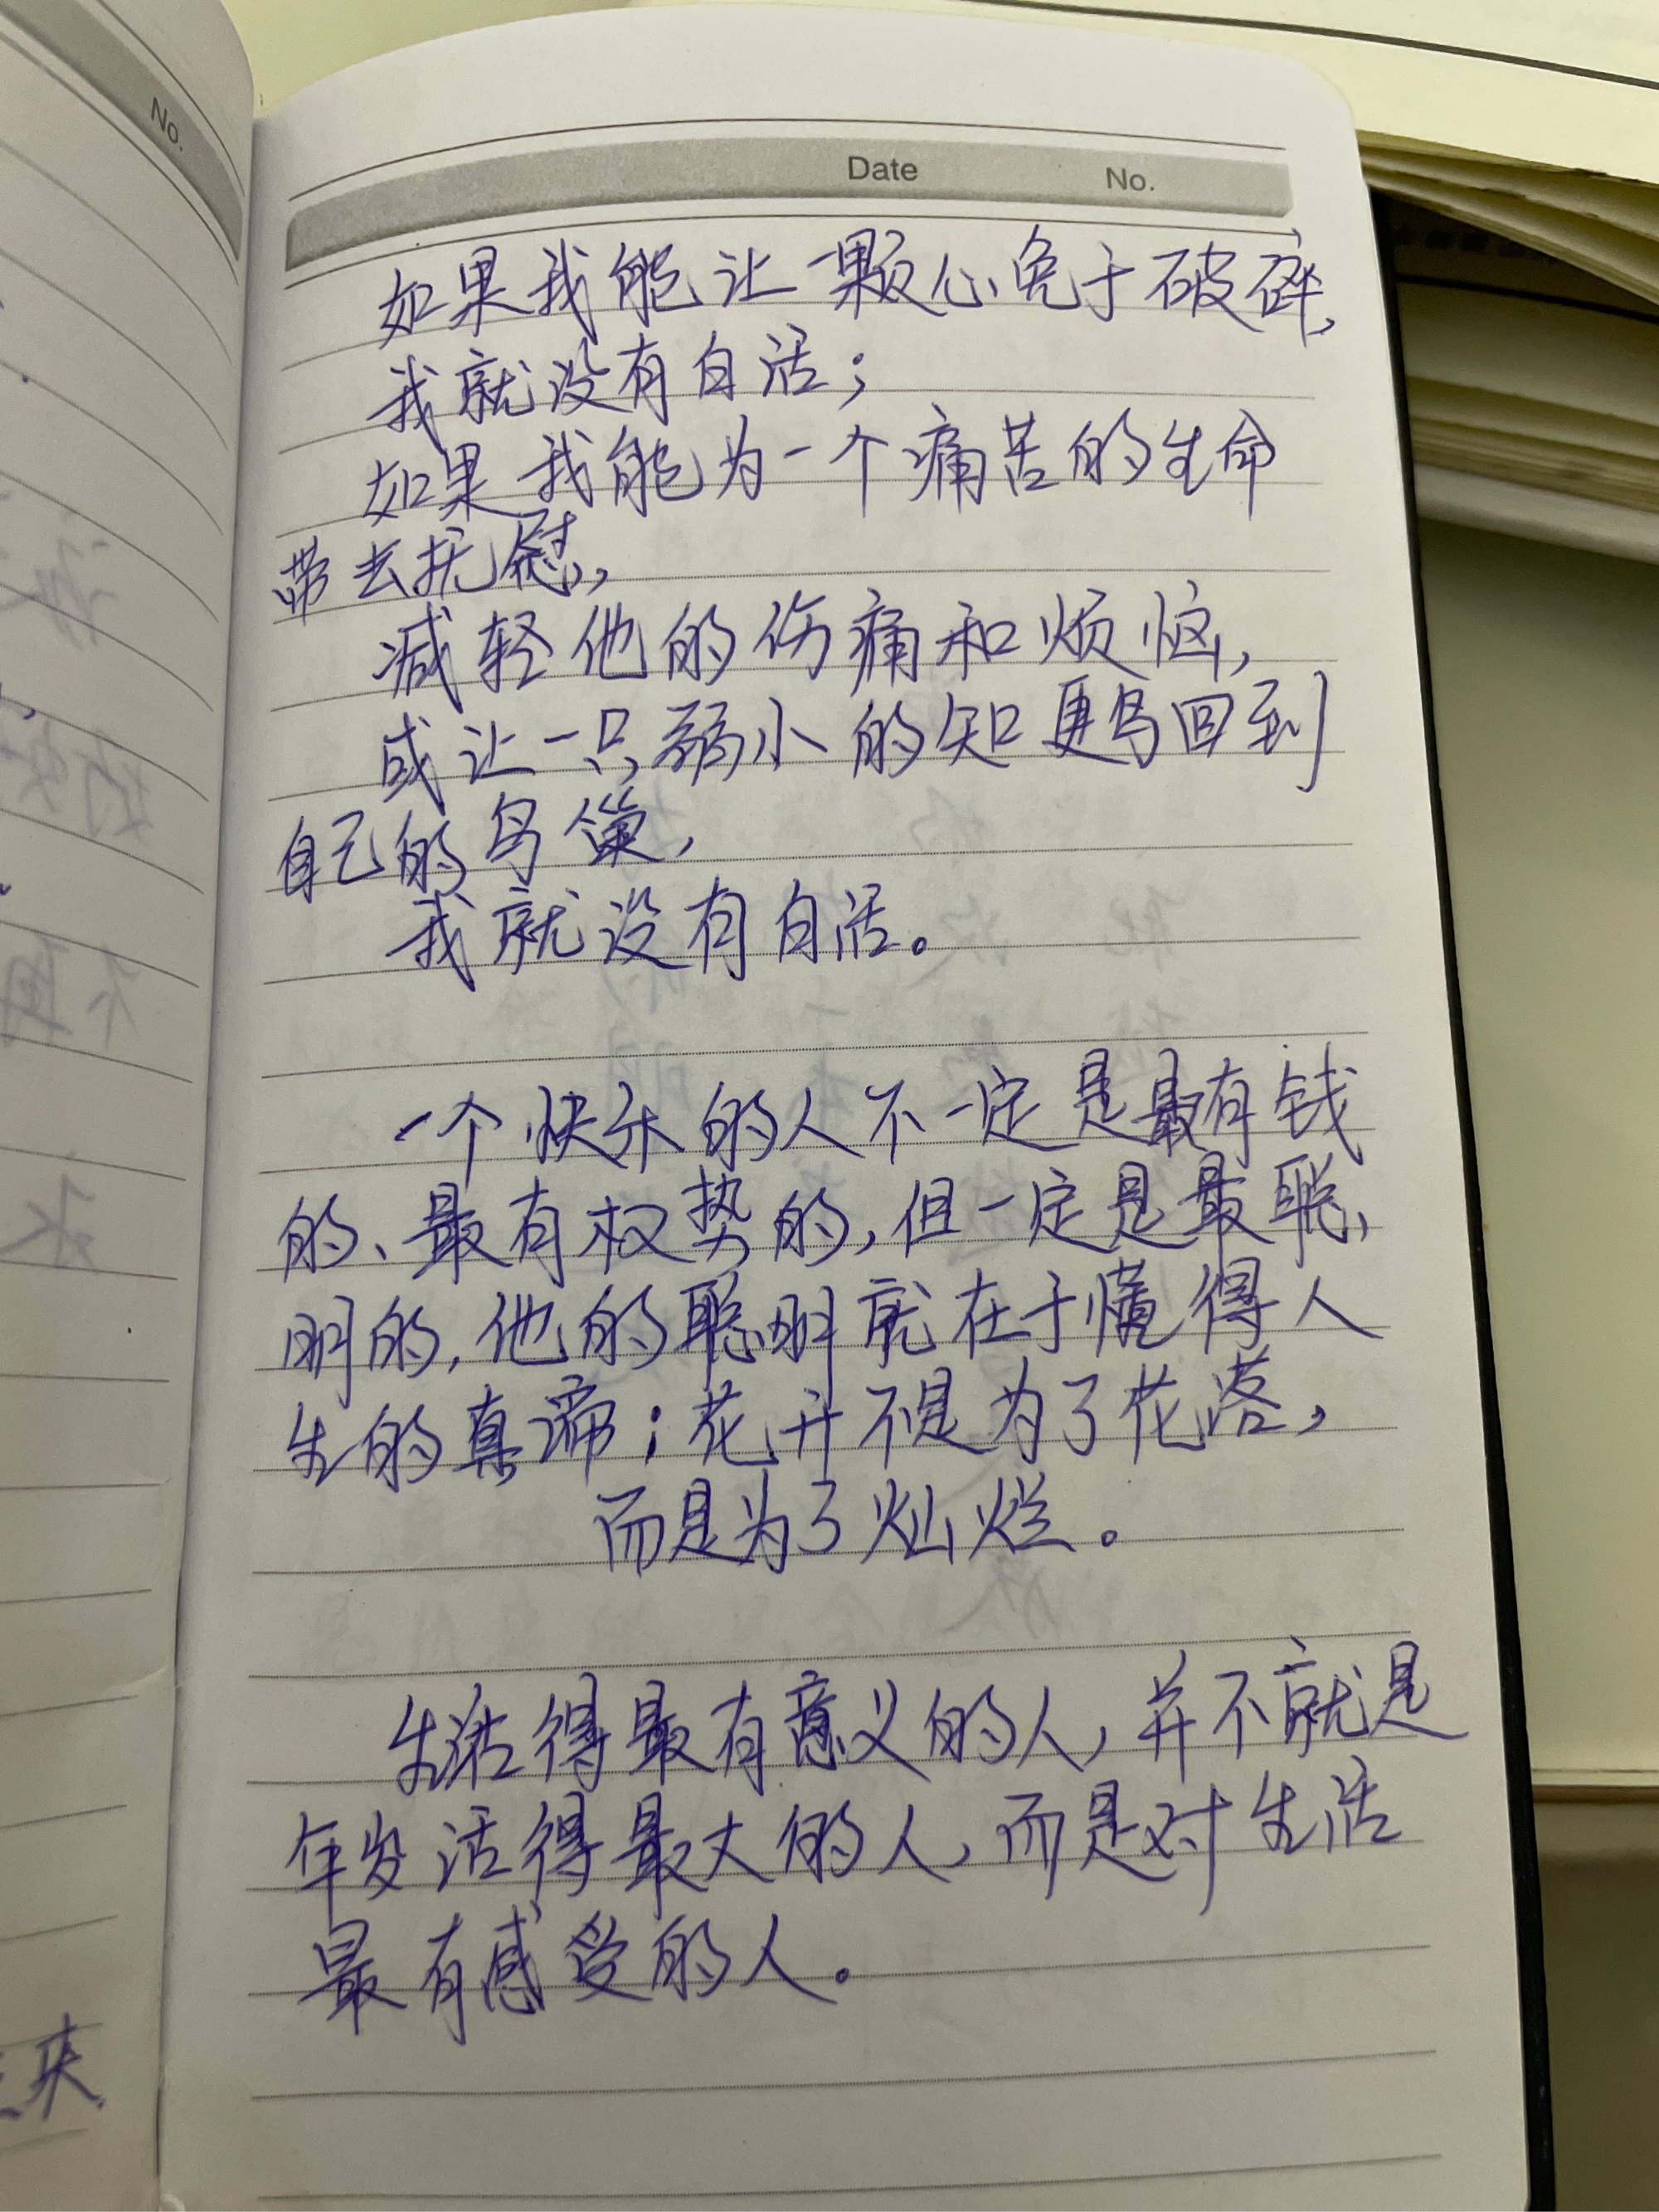 No.
Date No.
如果我能让一颗心免于破碎,
我就没有白活;
如果我能为一个痛苦的生命
带去抚慰,
减轻他的伤痛和烦恼,
或让一只弱小的知更鸟回到
自己的鸟巢,
我就没有白活。
一个快乐的人不一定是最有钱
的、最有权势的,但一定是最聪
明的,他的聪明就在于懂得人
生的真谛:花开不是为了花落,
而是为了灿烂。
生活得最有意义的人,并不就是
年岁活得最大的人,而是对生活
最有感受的人。
来